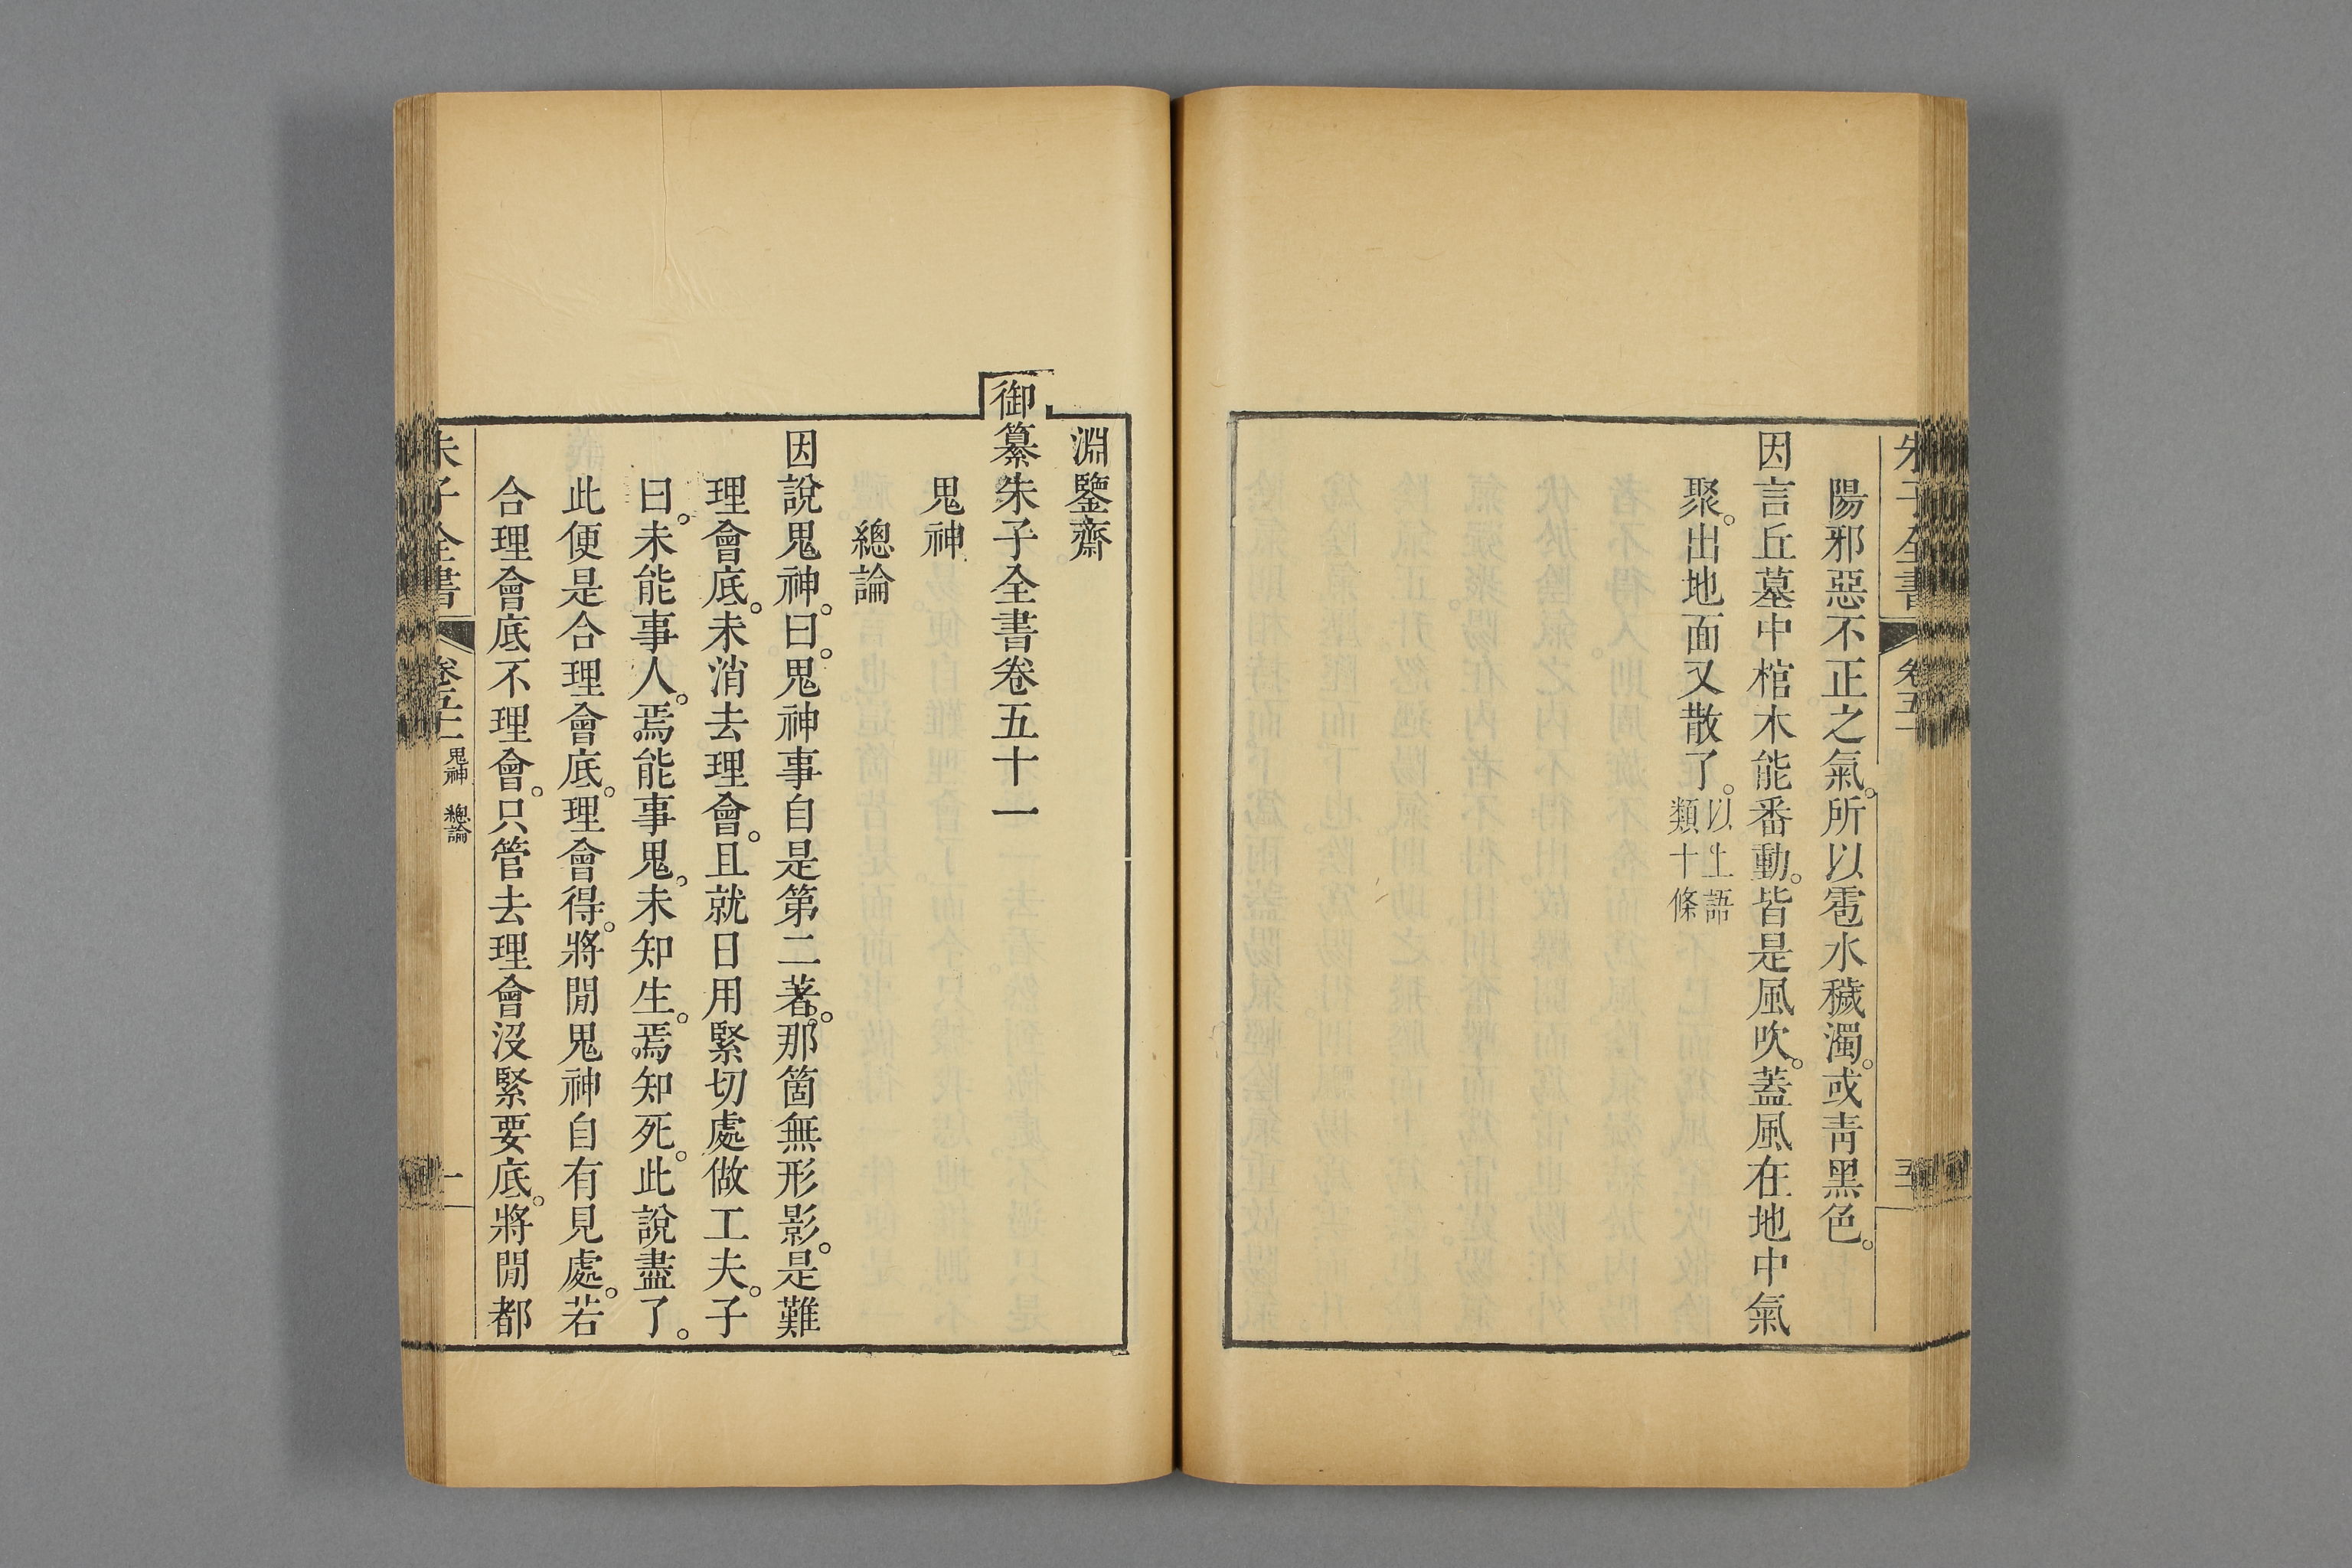 朱子全書 卷五十
陽邪惡不正之氣。所以雹水穢濁。或靑黑色。
因言丘墓中棺木能番動。皆是風吹。蓋風在地中氣
聚。出地面又散了。以上語
類十條
淵鑒齋
御纂朱子全書卷五十一
鬼神
總論
因說鬼神。曰。鬼神事自是第二著。那箇無形影。是難
理會底。未消去理會。且就日用緊切處做工夫。子
曰。未能事人。焉能事鬼。未知生。焉知死。此說盡了。
此便是合理會底。理會得。將閒鬼神自有見處。若
合理會底不理會。只管去理會沒緊要底。將閒都
朱子全書 卷五十一 鬼神 總論 一